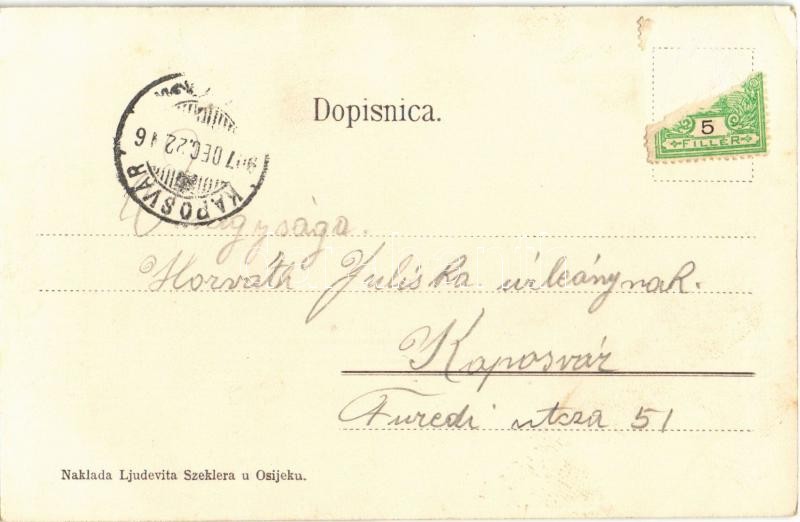 Dopisnica.
5
FILLÉR
KAPOSVÁR
907 DEC. 22
Nagysága.
Horváth Juliska úrleánynak.
Kaposvár
Furedi utcza 51
Naklada Ljudevita Szeklera u Osijeku.